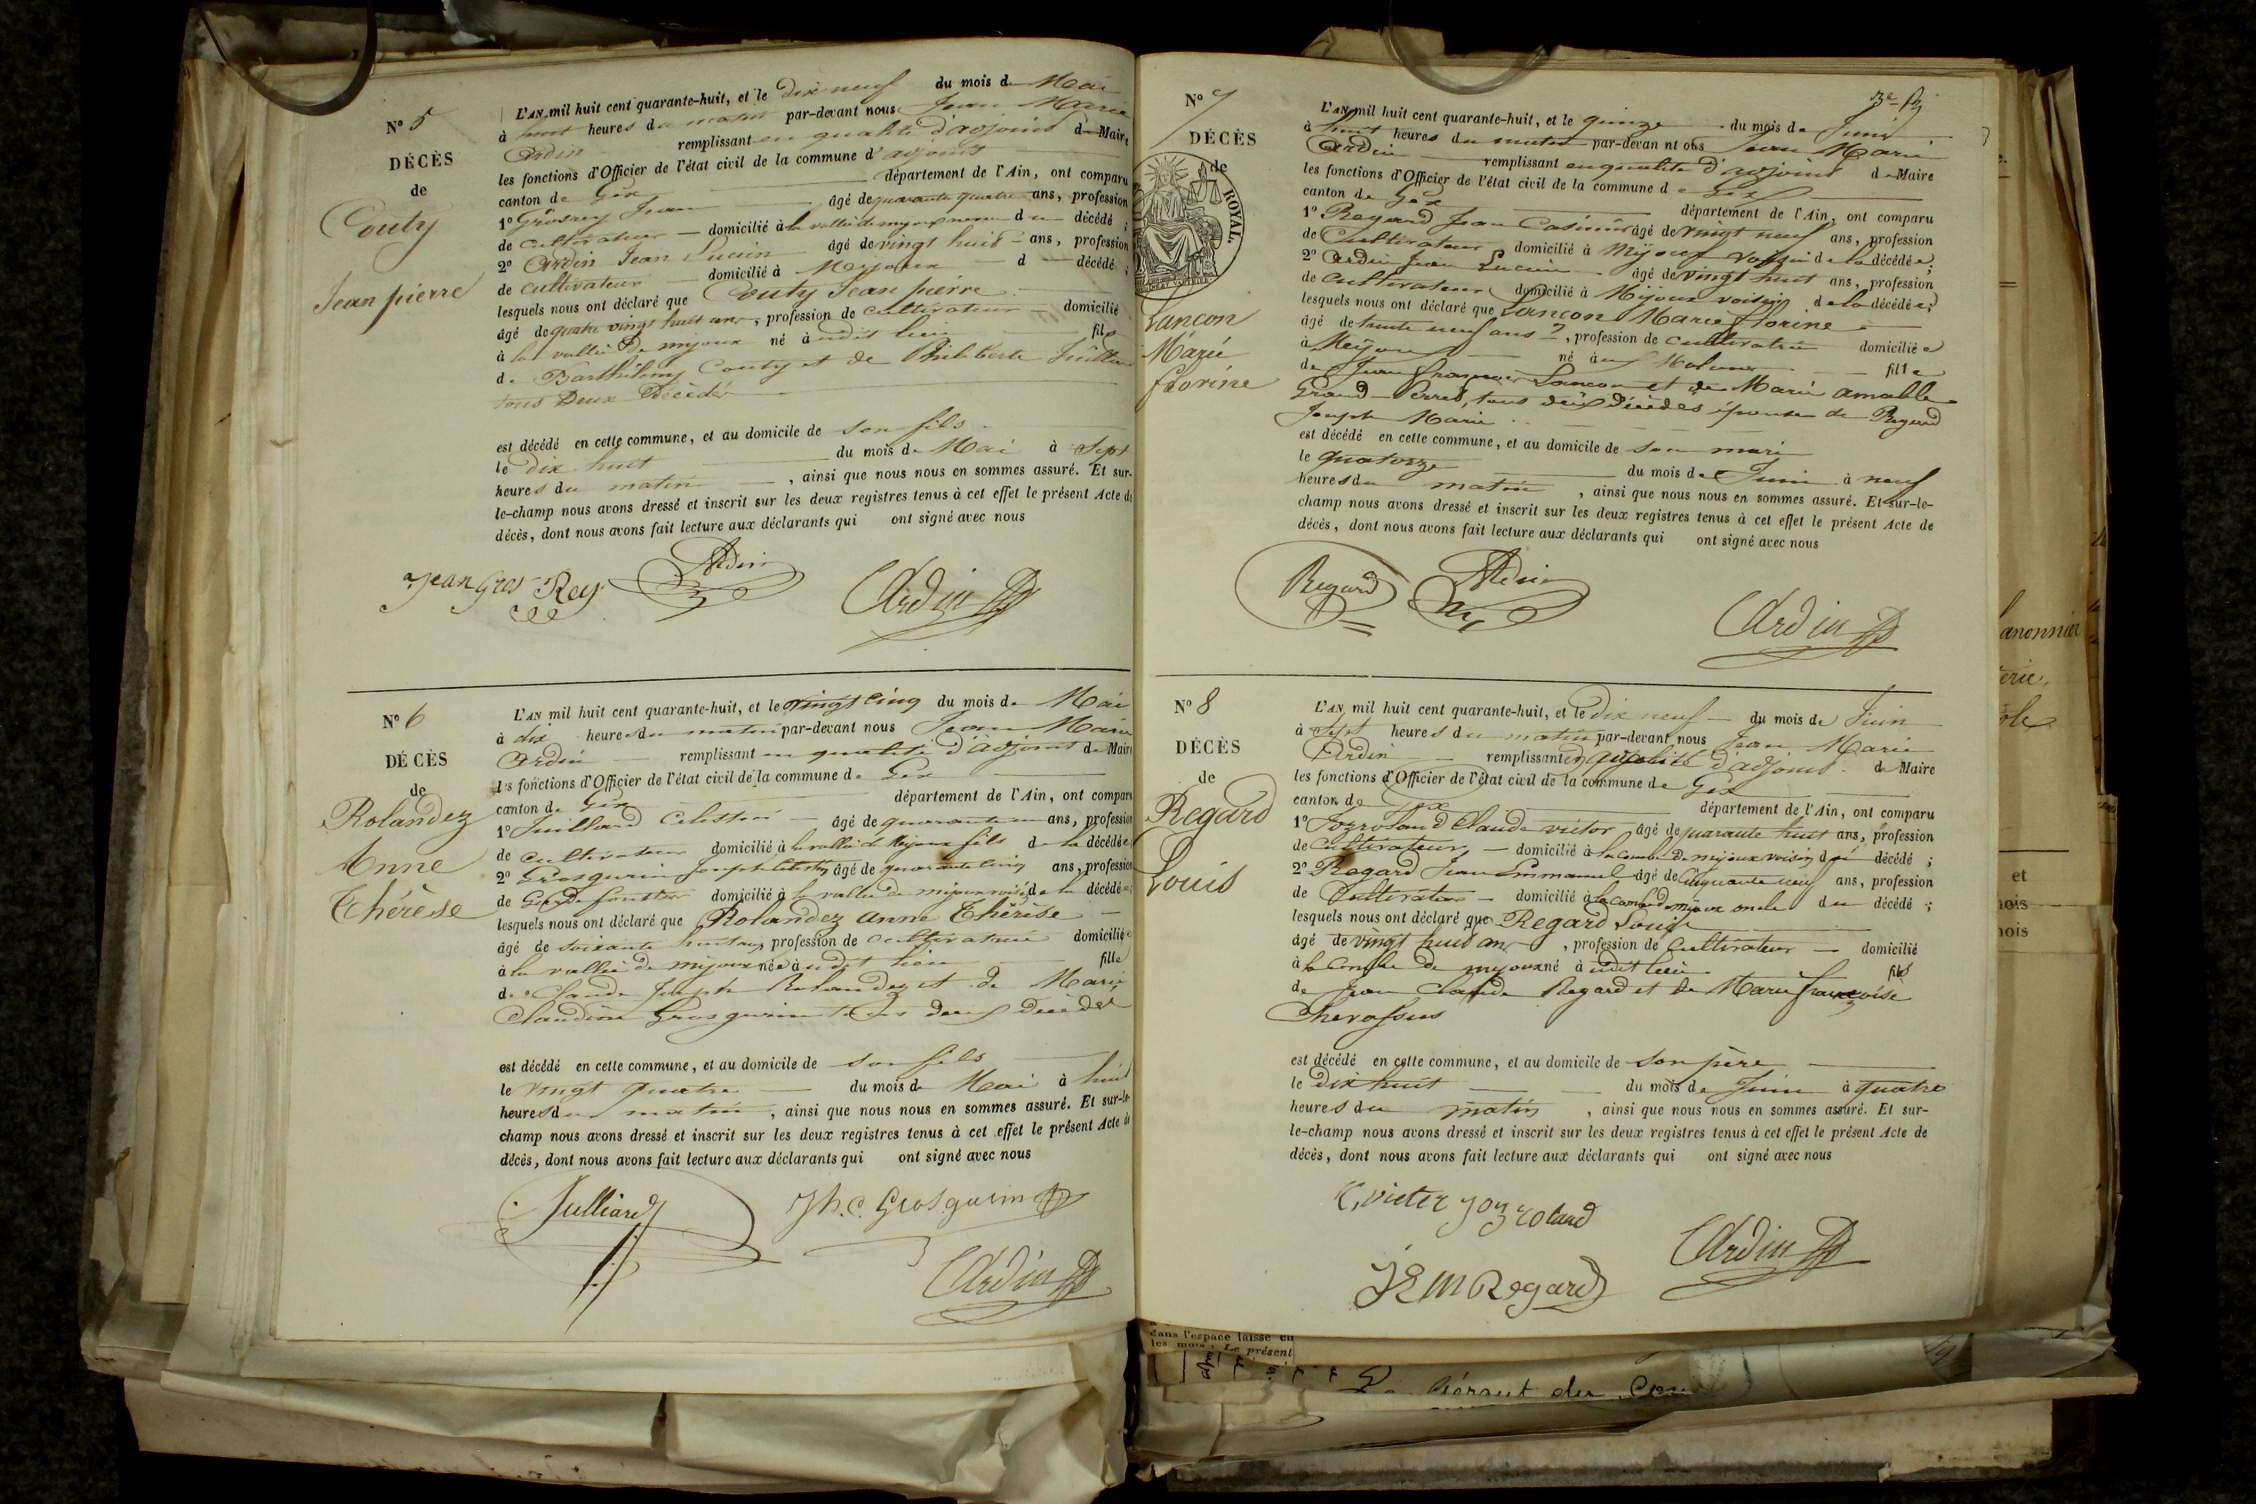 N° 5
DÉCÈS
de
Couty
Jean pierre
L'AN mil huit cent quarante-huit, et le dix neuf du mois de Mai
à huit heures du matin par-devant nous Jean Marie
Ardin remplissant en qualité d'adjoint de Maire
les fonctions d'Officier de l'état civil de la commune d'adjoint
canton de Gex département de l'Ain, ont comparu
1° Grosrey Jean âgé de quarante quatre ans, profession
de cultivateur domicilié à la vallée de mijoux du décédé ;
2° Ardin Jean Lucien âgé de vingt huit ans, profession
de cultivateur domicilié à Mijoux d décédé ;
lesquels nous ont déclaré que Couty Jean pierre
âgé de quatre vingt huit ans, profession de cultivateur domicilié
à la vallée de mijoux né à udit lieu fils
de Barthélemy Couty et de
tous Deux Décédés
est décédé en cette commune, et au domicile de son fils
le dix huit du mois de Mai à sept
heures du matin, ainsi que nous nous en sommes assuré. Et sur-
le-champ nous avons dressé et inscrit sur les deux registres tenus à cet effet le présent Acte de
décès, dont nous avons fait lecture aux déclarants qui ont signé avec nous
Jean Gros Rey Ardin Ardin
N° 6
DÉCÈS
de
Rolandez
Anne
Thérèse
L'AN mil huit cent quarante-huit, et le vingt cinq du mois de Mai
à dix heures du matin par-devant nous Jean Marie
Ardin remplissant en qualité d'adjoint de Maire
les fonctions d'Officier de l'état civil de la commune de Gex
canton de Gex département de l'Ain, ont comparu
1° Juilland Celestin âgé de quarante un ans, profession
de cultivateur domicilié à la vallée de Mijoux fils de la décédée
2° Grosgurin Joseph âgé de quarante cinq ans, profession
de Garde forestier domicilié à la vallée de mijoux de la décédée
lesquels nous ont déclaré que Rolandez anne Thérèse
âgé de soixante huit ans profession de cultivatrice domiciliée
à la vallée de mijoux née à udit lieu fille
de Claude Joseph Rolandez et de Marie
Claudine Grosgurin tous deux Décédés
est décédé en cette commune, et au domicile de son fils
le vingt quatre du mois de Mai à huit
heures du matin, ainsi que nous nous en sommes assuré. Et sur-le-
champ nous avons dressé et inscrit sur les deux registres tenus à cet effet le présent Acte de
décès, dont nous avons fait lecture aux déclarants qui ont signé avec nous
Julliard Jh. C. Grosgurin
Ardin
N° 7
DÉCÈS
de
ROYAL.
Lançon
Marie
florine
L'AN mil huit cent quarante-huit, et le quinze du mois de Juin
à huit heures du matin par-devan nt ous Jean Marie
Ardin remplissant en qualité d'adjoint de Maire
les fonctions d'Officier de l'état civil de la commune de Gex
canton de Gex département de l'Ain, ont comparu
1° Regard Jean Casimir âgé de vingt neuf ans, profession
de Cultivateur domicilié à Mijoux voisin de la décédée ;
2° Ardin Jean Lucien âgé de vingt huit ans, profession
de cultivateur domicilié à Mijoux voisin de la décédée ;
lesquels nous ont déclaré que Lançon Marie florine
âgé de trente neuf ans, profession de cultivatrice domiciliée
à Mijoux né à fille
de Jean françois Lançon et de Marie amable
Grand Perret, tous deux Décédés épouse de Regard
Joseph Marie
est décédé en cette commune, et au domicile de son mari
le quatorze du mois de Juin à neuf
heures du matin, ainsi que nous nous en sommes assuré. Et sur-le-
champ nous avons dressé et inscrit sur les deux registres tenus à cet effet le présent Acte de
décès, dont nous avons fait lecture aux déclarants qui ont signé avec nous
Regard Ardin
Ardin
N° 8
DÉCÈS
de
Regard
Louis
L'AN mil huit cent quarante-huit, et le dix neuf du mois de Juin
à sept heures du matin par-devant nous Jean Marie
Ardin remplissant en qualité d'adjoint de Maire
les fonctions d'Officier de l'état civil de la commune de Gex
canton de Gex département de l'Ain, ont comparu
1° Jozroland Claude victor âgé de quarante huit ans, profession
de Cultivateur domicilié à la combe de mijoux voisin du décédé ;
2° Regard Jean Emmanuel âgé de Cinquante neuf ans, profession
de Cultivateur domicilié à la combe de mijoux oncle du décédé ;
lesquels nous ont déclaré que Regard Louis
âgé de vingt huit ans, profession de Cultivateur domicilié
à la Combe de mijoux né à udit lieu fils
de Jean Claude Regard et de Marie françoise
Chevassus
est décédé en cette commune, et au domicile de son père
le dix huit du mois de Juin à quatre
heures du matin, ainsi que nous nous en sommes assuré. Et sur-
le-champ nous avons dressé et inscrit sur les deux registres tenus à cet effet le présent Acte de
décès, dont nous avons fait lecture aux déclarants qui ont signé avec nous
C, victer Jozroland
Ardin
J E M Regard
et
dans l'espace laissé en
les mois : Le présent